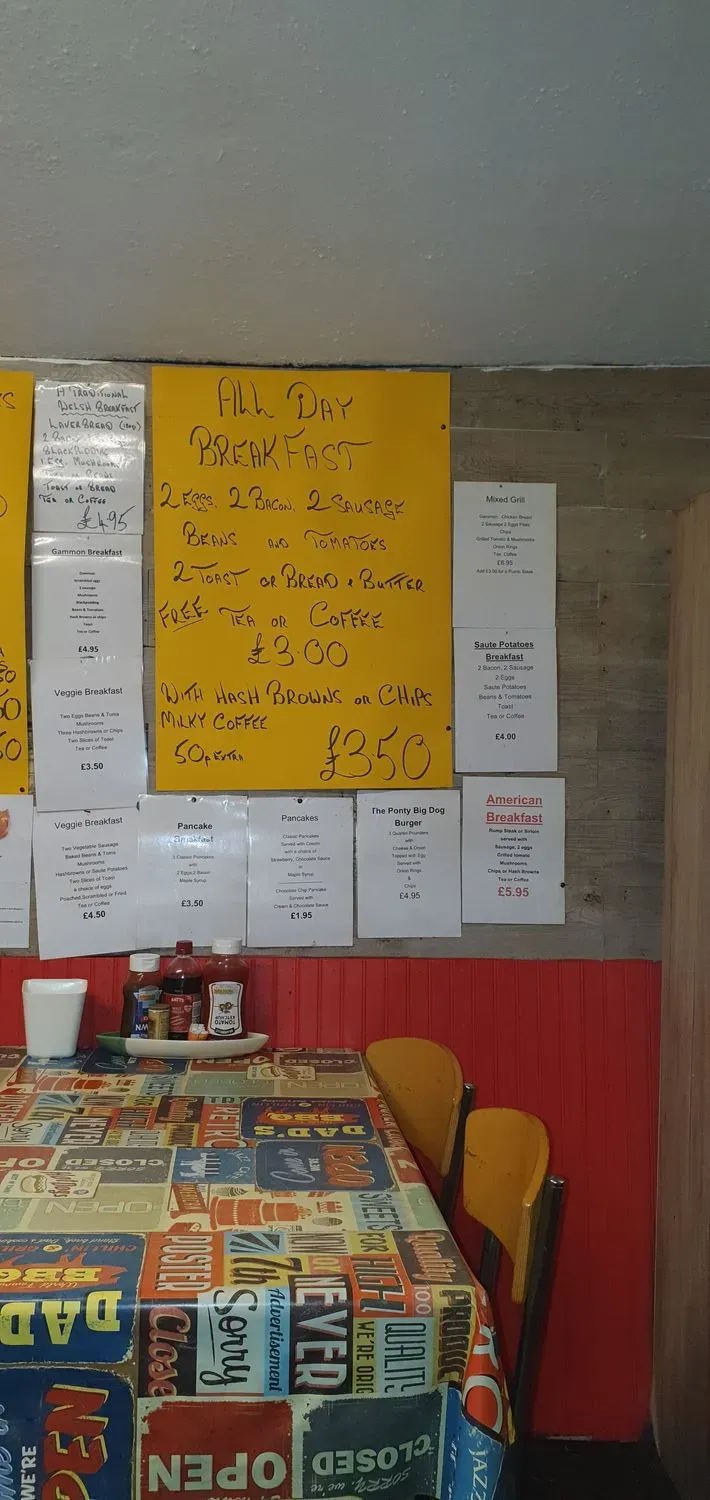 A TRADITIONAL
WELSH BREAKFAST
LAVERBREAD (100G)
TOAST OR BREAD
TEA OR COFFEE
£4.95
Gammon Breakfast
Gammon
Scrambled eggs
2 sausage
Mushrooms
Blackpudding
Beans & Tomatoes
Hash Browns or chips
Toast
Tea or Coffee
£4.95
Veggie Breakfast
Two Eggs Beans & Toms
Mushrooms
Three Hashbrowns or Chips
Two Slices of Toast
Tea or Coffee
£3.50
ALL DAY
BREAKFAST
2 EGGS, 2 BACON, 2 SAUSAGE
BEANS AND TOMATOES
2 TOAST OR BREAD & BUTTER
FREE TEA OR COFFEE
£3.00
WITH HASH BROWNS OR CHIPS
MILKY COFFEE
50p EXTRA £3.50
Mixed Grill
Gammon, Chicken Breast
2 Sausage 2 Eggs Peas
Chips
Grilled Tomato & Mushrooms
Onion Rings
Tea, Coffee
£6.95
Add £3.00 for a Rump Steak
Saute Potatoes
Breakfast
2 Bacon, 2 Sausage
2 Eggs
Saute Potatoes
Beans & Tomatoes
Toast
Tea or Coffee
£4.00
Veggie Breakfast
Two Vegetable Sausage
Baked Beans & Toms
Mushrooms
Hashbrowns or Saute Potatoes
Two Slices of Toast
a choice of eggs
Poached,Scrambled or Fried
Tea or Coffee
£4.50
Pancake
Breakfast
3 Classic Pancakes
with
2 Eggs,2 Bacon
Maple Syrup
£3.50
Pancakes
Classic Pancakes
Served with Cream
with a choice of
Strawberry, Chocolate Sauce
or
Maple Syrup
Chocolate Chip Pancake
Served with
Cream & Chocolate Sauce
£1.95
The Ponty Big Dog
Burger
3 Quarter Pounders
with
Cheese & Onion
Topped with Egg
Served with
Onion Rings
&
Chips
£4.95
American
Breakfast
Rump Steak or Sirloin
served with
Sausage, 2 eggs
Grilled tomato
Mushrooms
Chips or Hash Browns
Tea or Coffee
£5.95
TOMATO
KETCHUP
CLOSED
OPEN
DAD'S
BBQ
CLOSED
OPEN
POSTER
7th
Advertisement
Sorry
Close
NEVER
HIGH
QUALITY
WE'RE
DAD
OPEN
CLOSED
SORRY, we're
JAZZ